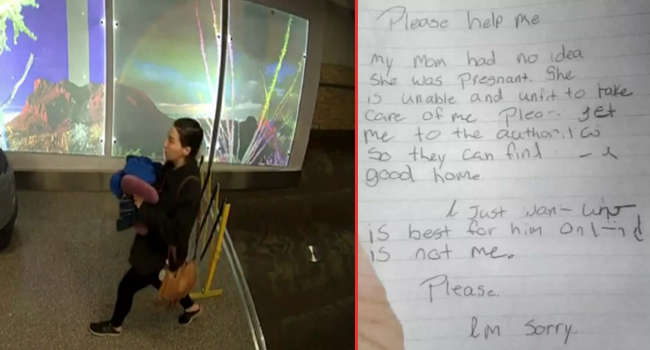 Please help me
my mom had no idea
she was pregnant. She
is unable and unfit to take
care of me. get
me to the authorities
so they can find
good home.
I Just
is best for him and
is not me.
Please.
Im sorry